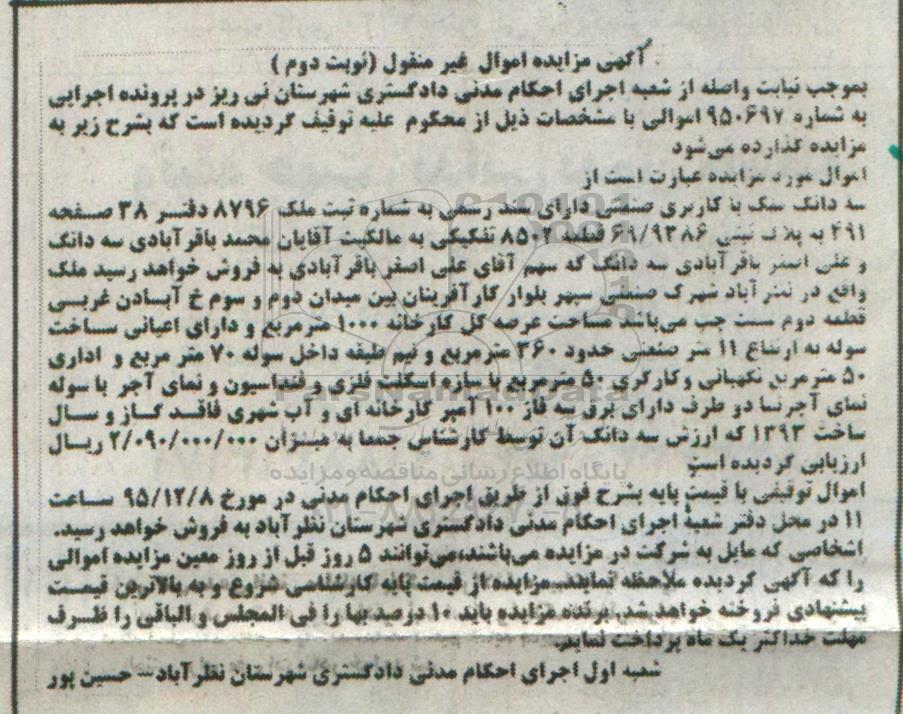 آگهی مزایده اموال غیر منقول (نوبت دوم)
بموجب نیابت واصله از شعبه اجرای احکام مدنی دادگستری شهرستان نی ریز در پرونده اجرایی
به شماره ۹۵۰۶۹۷ اموالی با مشخصات ذیل از محکوم علیه توقیف گردیده است که بشرح زیر به
مزایده گذارده می‌شود
اموال مورد مزایده عبارت است از
سه دانگ ملک با کاربری صنعتی دارای سند رسمی به شماره ثبت ملک ۸۷۹۶ دفتر ۳۸ صفحه
۴۹۱ به پلاک ثبتی ۶۹/۹۳۸۶ قطعه ۸۵۰۲ تفکیکی به مالکیت آقایان محمد باقرآبادی سه دانگ
و علی اصغر باقرآبادی سه دانگ که سهم آقای علی اصغر باقرآبادی به فروش خواهد رسید ملک
واقع در نظرآباد شهرک صنعتی سپهر بلوار کارآفرینان بین میدان دوم و سوم خ آبسادن غربی
قطعه دوم سمت چپ می‌باشد مساحت عرصه کل کارخانه ۱۰۰۰ مترمربع و دارای اعیانی ساخت
سوله به ارتفاع ۱۱ متر صنعتی حدود ۳۶۰ مترمربع و نیم طبقه داخل سوله ۷۰ متر مربع و اداری
۵۰ مترمربع نگهبانی و کارگری ۵۰ مترمربع با سازه اسکلت فلزی و فنداسیون و نمای آجر با سوله
نمای آجرنما دو طرف دارای برق سه فاز ۱۰۰ آمپر کارخانه ای و آب شهری فاقد گاز و سال
ساخت ۱۳۹۳ که ارزش سه دانگ آن توسط کارشناس جمعا به میزان ۲/۰۹۰/۰۰۰/۰۰۰ ریال
ارزیابی گردیده است
اموال توقیفی با قیمت پایه بشرح فوق از طریق اجرای احکام مدنی در مورخ ۹۵/۱۲/۸ ساعت
۱۱ در محل دفتر شعبه اجرای احکام مدنی دادگستری شهرستان نظرآباد به فروش خواهد رسید.
اشخاصی که مایل به شرکت در مزایده می‌باشند،می‌توانند ۵ روز قبل از روز معین مزایده اموالی
را که آگهی گردیده ملاحظه نمایند.مزایده از قیمت پایه کارشناسی شروع و به بالاترین قیمت
پیشنهادی فروخته خواهد شد.برنده مزایده باید ۱۰ درصد بها را فی المجلس و الباقی را ظرف
مهلت حداکثر یک ماه پرداخت نماید.
شعبه اول اجرای احکام مدنی دادگستری شهرستان نظرآباد – حسین پور
ParsNamadData
پایگاه اطلاع رسانی مناقصه و مزایده